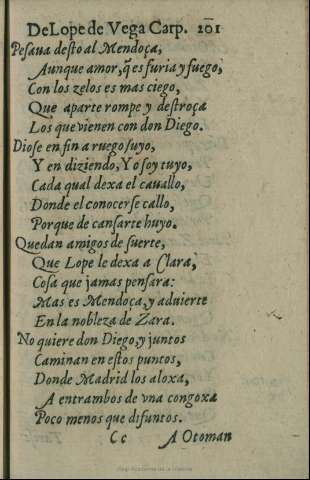 De Lope de Vega Carp. 201
Pesaua desto al Mendoça,
Aunque amor, q̃ es furia y fuego,
Con los zelos es mas ciego,
Que aparte rompe y destroça
Los que vienen con don Diego.
Diose en fin a ruego suyo,
Y en diziendo, Yo soy tuyo,
Cada qual dexa el cauallo,
Donde el conocerse callo,
Porque de cansarte huyo.
Quedan amigos de suerte,
Que Lope le dexa a Clara,
Cosa que jamas pensara:
Mas es Mendoça, y aduierte
En la nobleza de Zara.
No quiere don Diego, y juntos
Caminan en estos puntos,
Donde Madrid los aloxa,
A entrambos de vna congoxa
Poco menos que difuntos.
Cc A Otoman